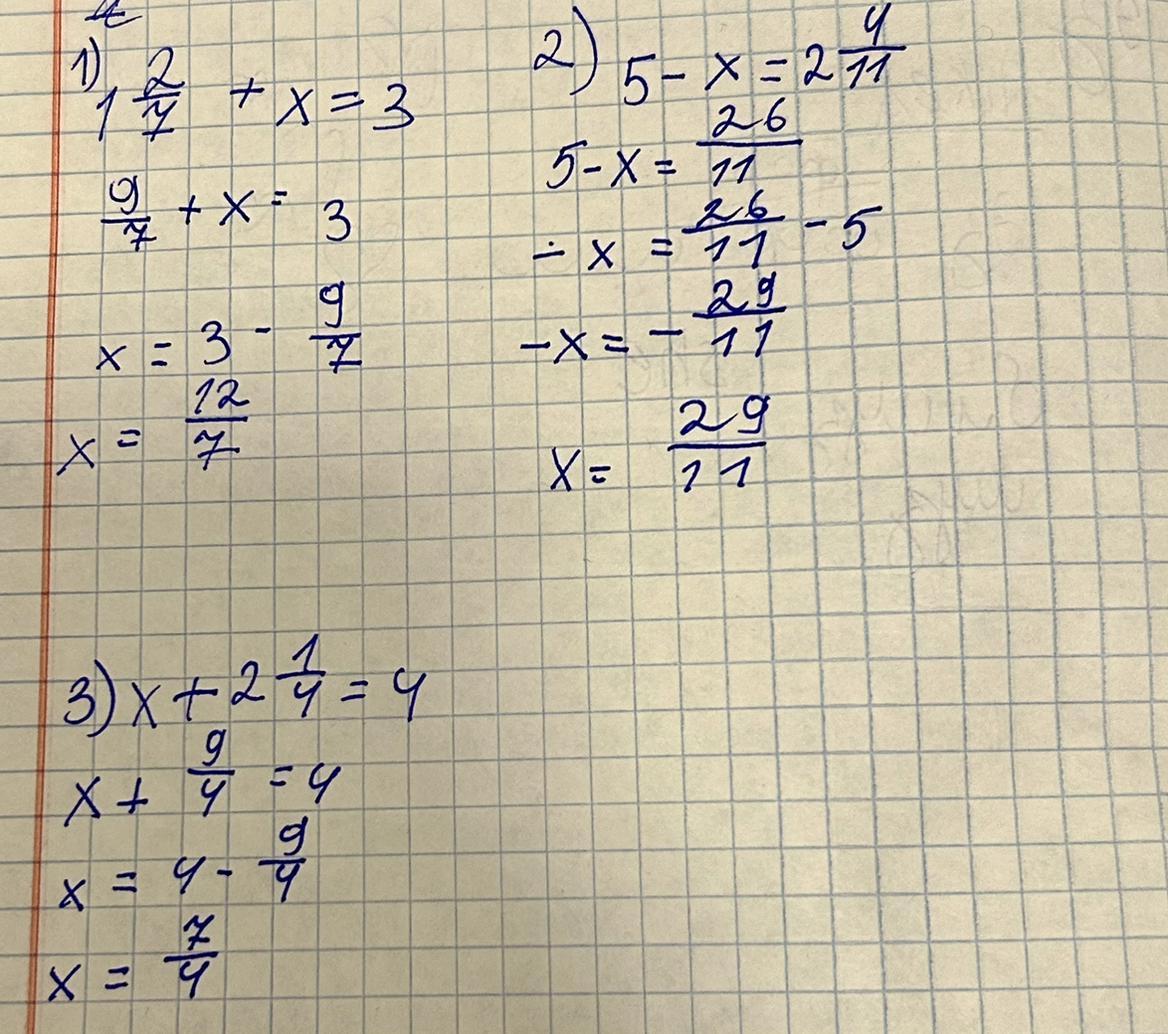 1) 1 2/7 + x = 3
9/7 + x = 3
x = 3 - 9/7
x = 12/7
2) 5 - x = 2 4/11
5 - x = 26/11
- x = 26/11 - 5
- x = - 29/11
x = 29/11
3) x + 2 1/4 = 4
x + 9/4 = 4
x = 4 - 9/4
x = 7/4